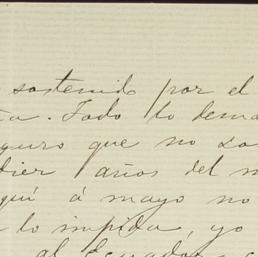 sostenido por el
ña. Todo lo dema
guro que no
años del m
quí á mayo no
lo impida, yo
al Ecuador